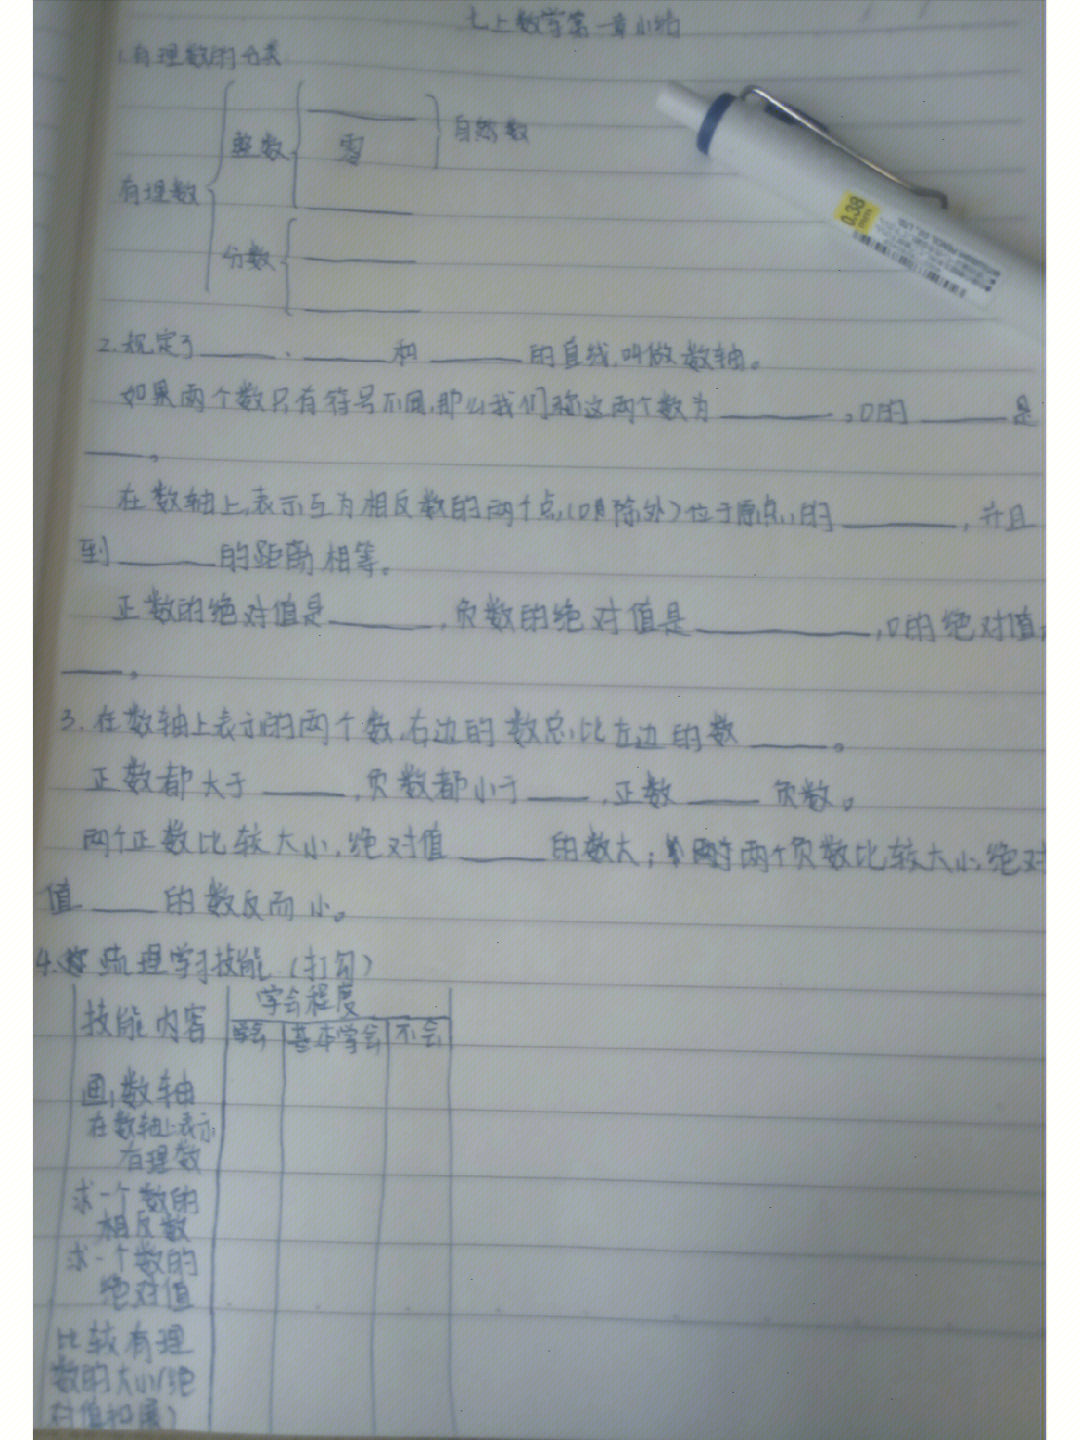 七上数学第一章小结
1.有理数的分类
有理数
整数
零
自然数
分数
2.规定了______、______和______的直线,叫做数轴。
如果两个数只有符号不同,那么我们称这两个数为______,0的______是
____。
在数轴上,表示互为相反数的两个点,(0除外)位于原点的______,并且
到______的距离相等。
正数的绝对值是______,负数的绝对值是______,0的绝对值
____。
3.在数轴上表示的两个数,右边的数总比左边的数____。
正数都大于____,负数都小于____,正数____负数。
两个正数比较大小,绝对值____的数大;两个负数比较大小,绝对
值____的数反而小。
4.梳理学习技能(打勾)
技能内容 学会程度
学会 基本学会 不会
画数轴
在数轴上表示
有理数
求一个数的
相反数
求一个数的
绝对值
比较有理
数的大小(绝
对值
0.38
mm